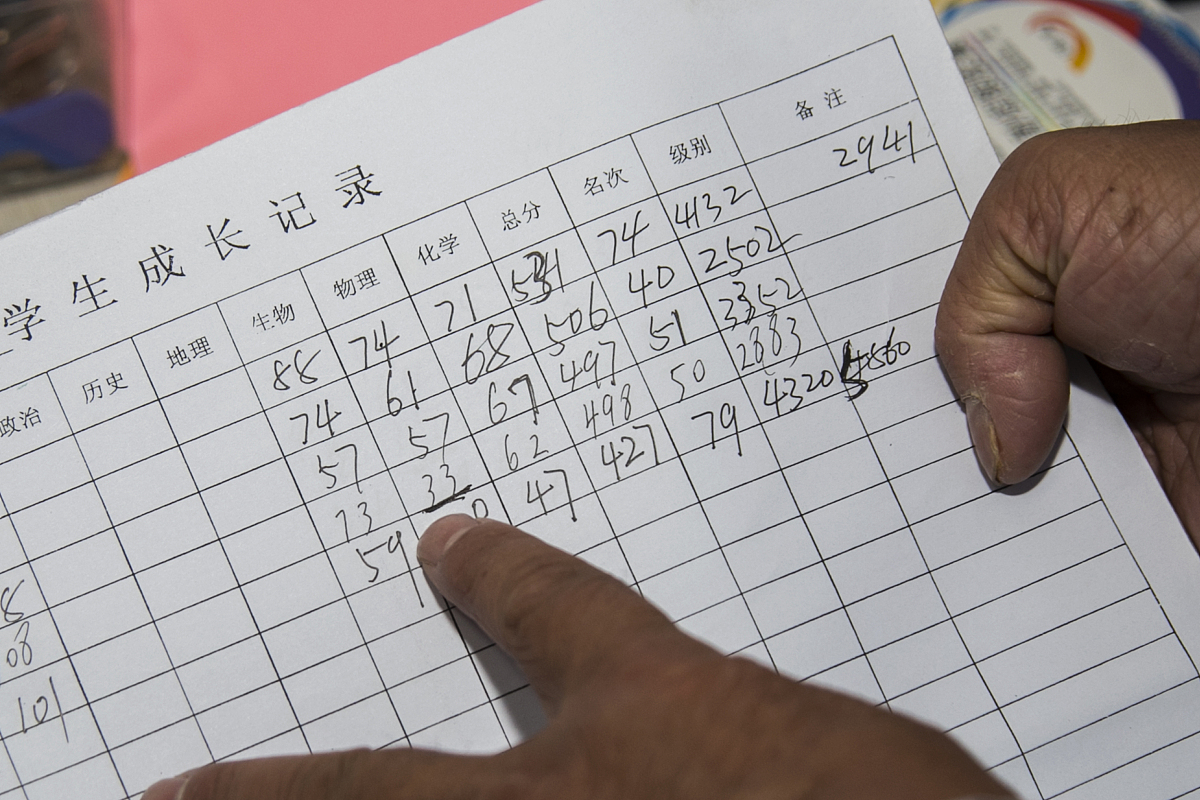 学生成长记录
政治 历史 地理 生物 物理 化学 总分 名次 级别 备注
88 74 71 74 4132 2941
74 61 68 506 40 2502
57 57 67 497 51 3352
73 33 62 498 50 2883
59 47 427 79 4320 4860
08
101